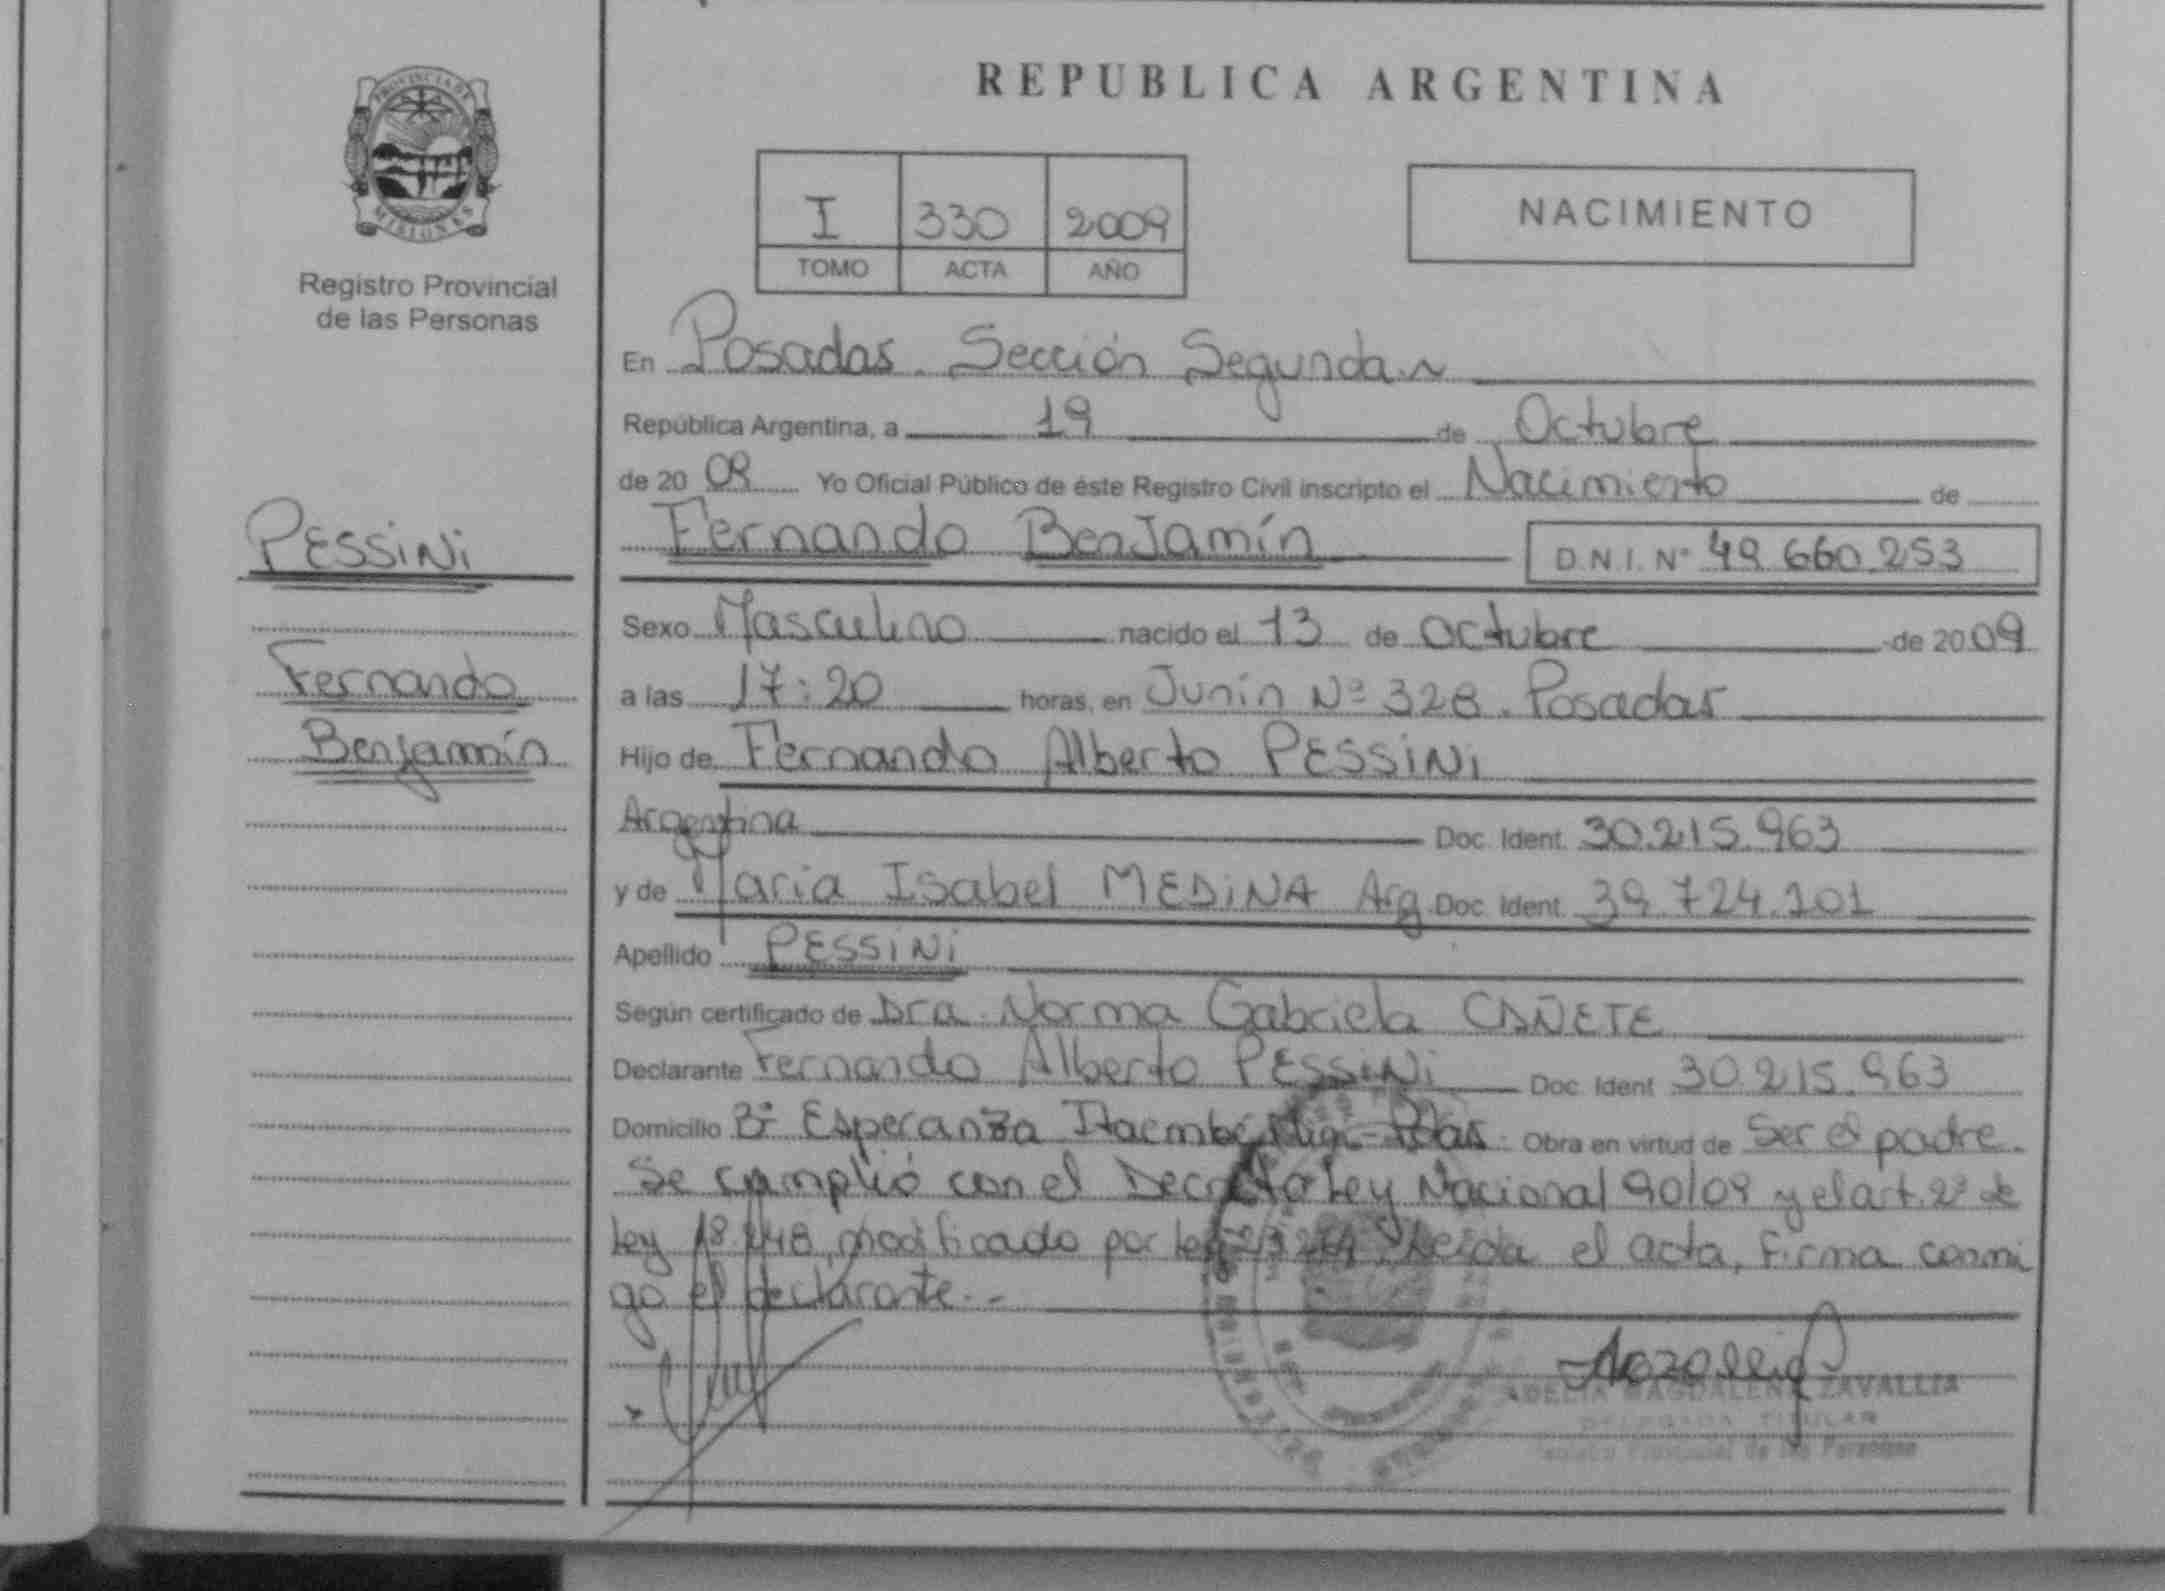 PROVINCIA DE
MISIONES
Registro Provincial
de las Personas
PESSINI
Fernando
Benjamín
REPUBLICA ARGENTINA
I 330 2009
TOMO ACTA AÑO
NACIMIENTO
En Posadas. Sección Segunda.~
República Argentina, a 19 de Octubre
de 20 09 Yo Oficial Público de éste Registro Civil inscripto el Nacimiento de
Fernando Benjamín D.N.I. Nº 49.660.253
Sexo Masculino nacido el 13 de Octubre de 2009
a las 17:20 horas, en Junín Nº 328. Posadas
Hijo de Fernando Alberto PESSINI
Argentina Doc. Ident. 30.215.963
y de Maria Isabel MEDINA Arg. Doc. Ident. 39.724.101
Apellido PESSINI
Según certificado de Dra. Norma Gabriela CAÑETE
Declarante Fernando Alberto PESSINI Doc. Ident. 30.215.963
Domicilio Bº Esperanza Itaembé Mini - Pdas. Obra en virtud de Ser el padre.
Se cumplió con el Decreto Ley Nacional 90/09 y el art. 2º de
Ley 18.248, modificado por ley Leída el acta, firma conmi
go el declarante.-
ADELIA MAGDALENA ZAVALLIA
DELEGADA TITULAR
Registro Provincial de las Personas